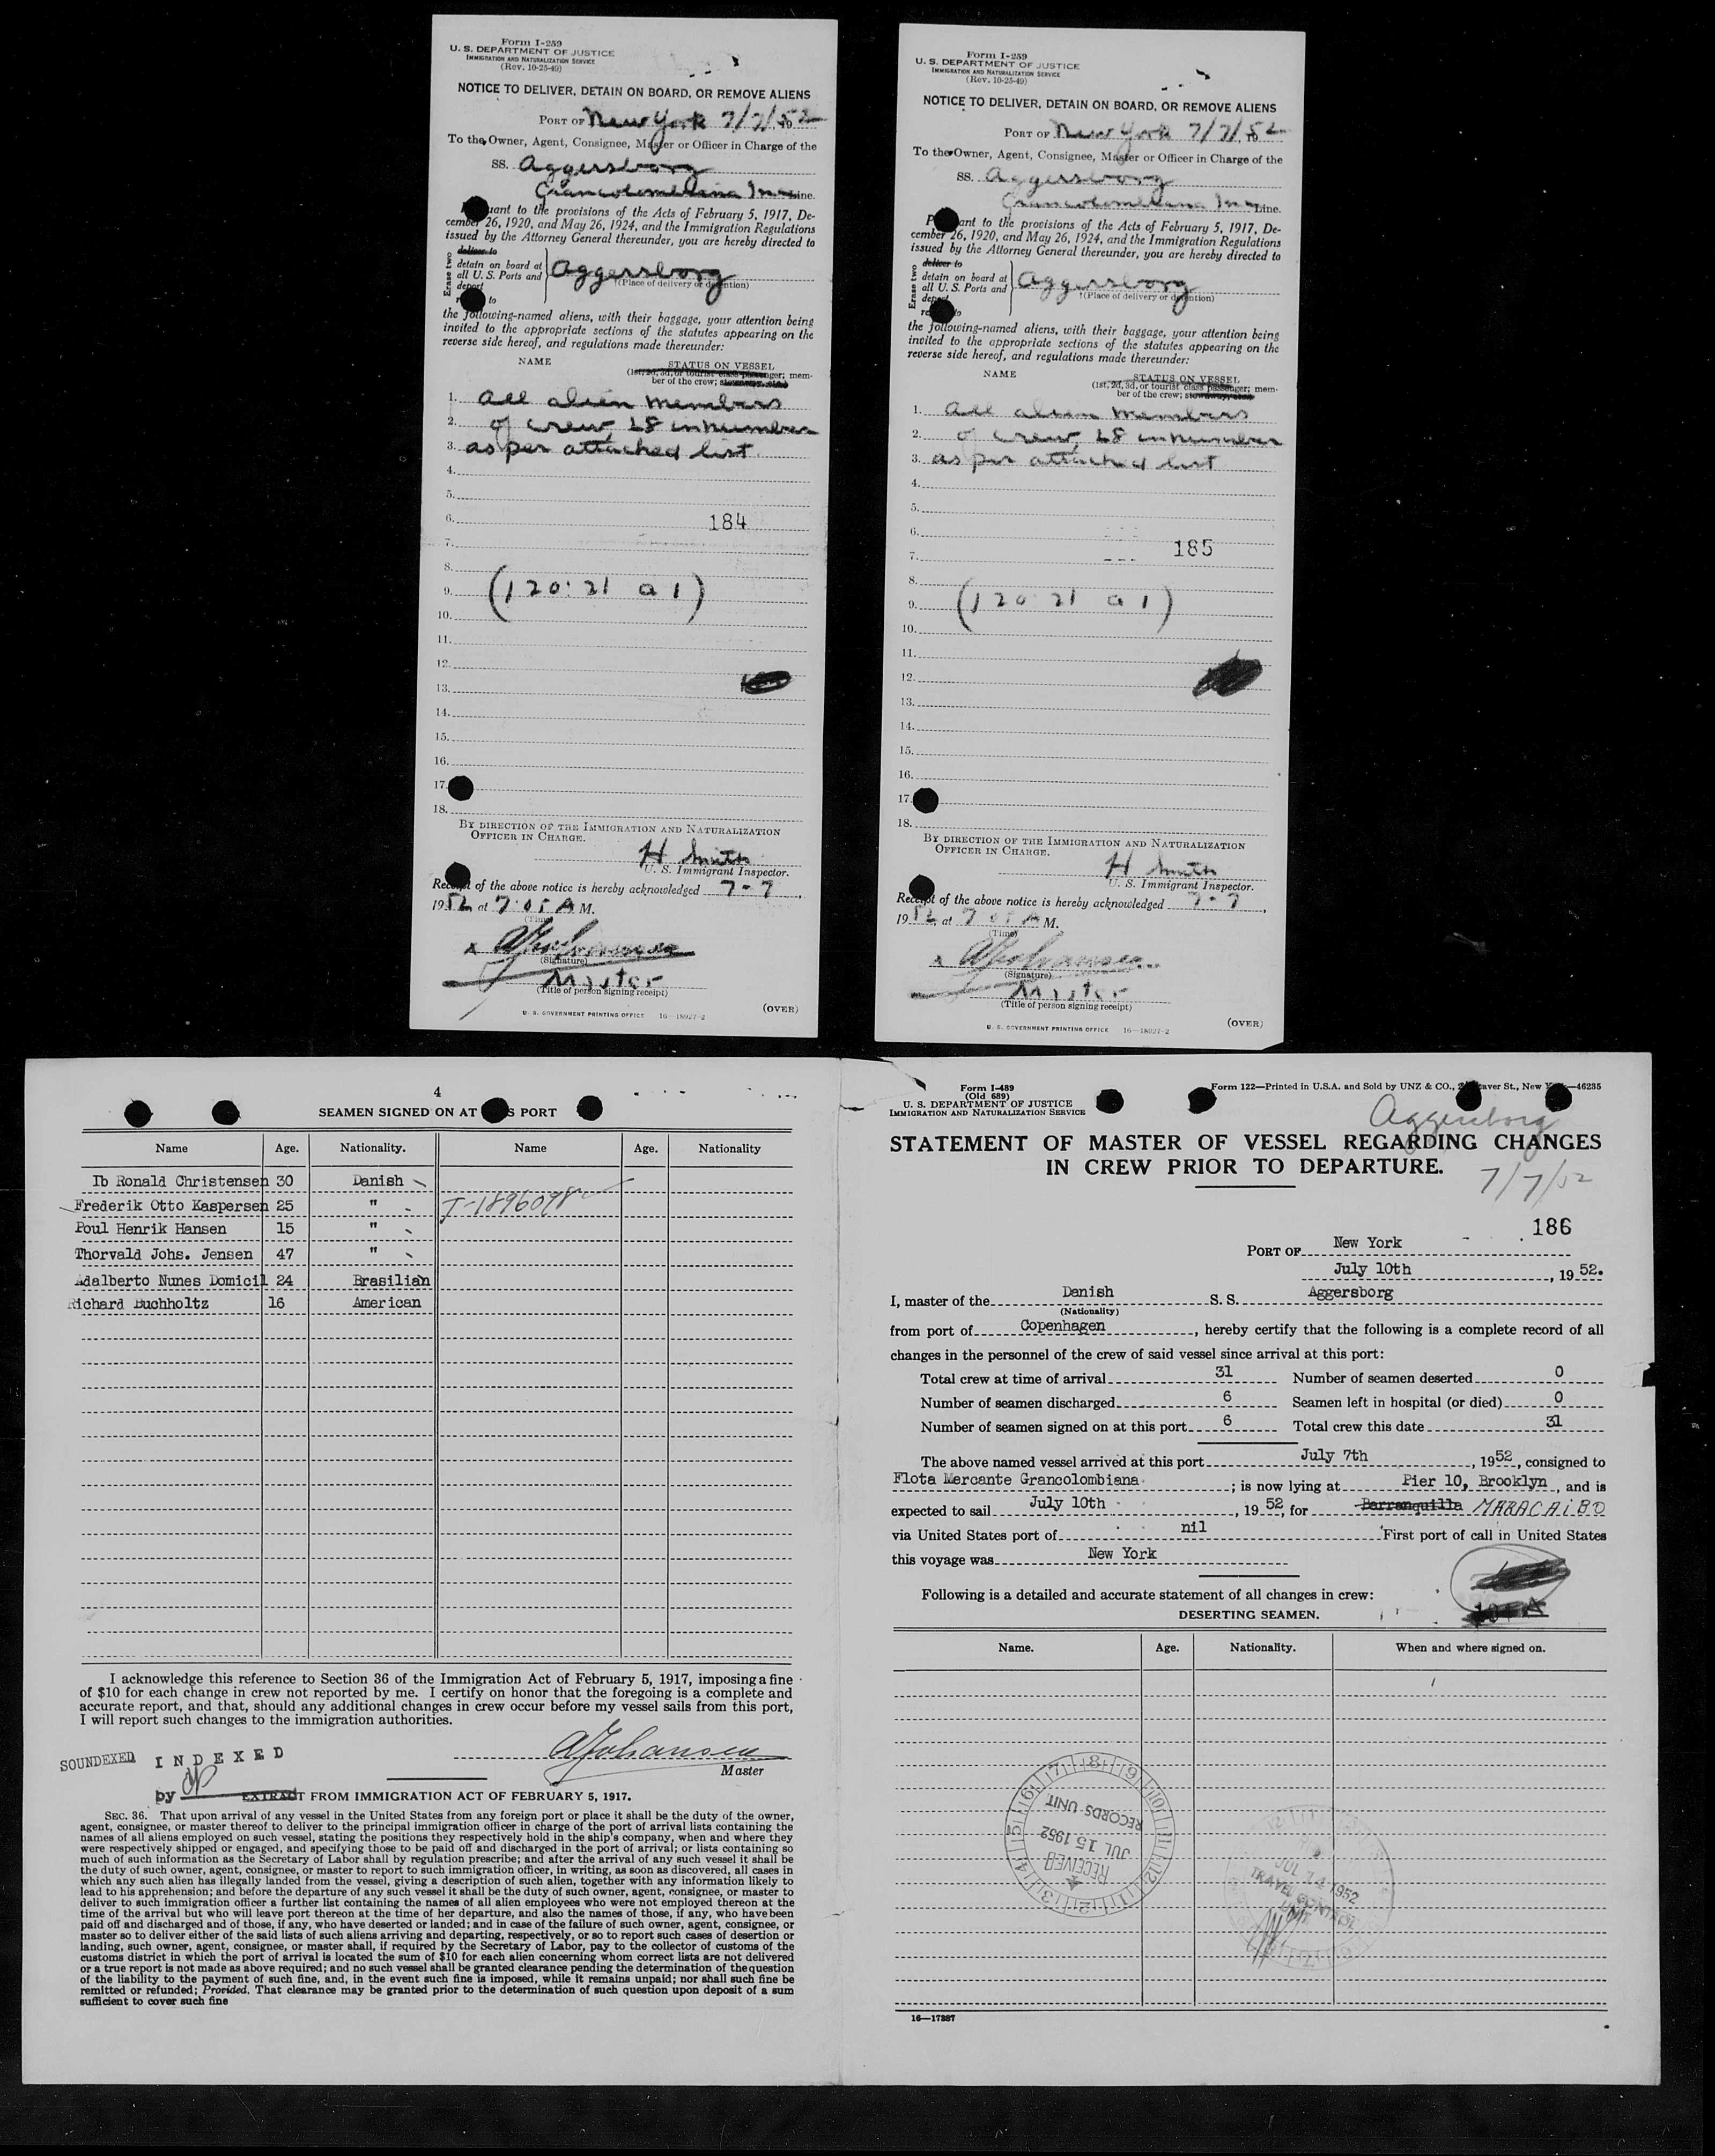 Form I-259
U. S. DEPARTMENT OF JUSTICE
IMMIGRATION AND NATURALIZATION SERVICE
(Rev. 10-25-49)
NOTICE TO DELIVER, DETAIN ON BOARD, OR REMOVE ALIENS
PORT OF New York 7/7/, 1952
To the Owner, Agent, Consignee, Master or Officer in Charge of the
SS. Aggersborg
Grancolombiana Inc Line.
uant to the provisions of the Acts of February 5, 1917, De-
cember 26, 1920, and May 26, 1924, and the Immigration Regulations
issued by the Attorney General thereunder, you are hereby directed to
Erase two
deliver to
detain on board at
all U. S. Ports and
deport
to
Aggersborg
†(Place of delivery or detention)
the following-named aliens, with their baggage, your attention being
invited to the appropriate sections of the statutes appearing on the
reverse side hereof, and regulations made thereunder:
NAME
STATUS ON VESSEL
(1st, 2d, 3d, or tourist class passenger; mem-
ber of the crew; stowaway, etc.)
1. All alien members
2. of crew, 28 in number
3. as per attached list.
4.
5.
6. 184
7.
8.
9. (120:21 a 1)
10.
11.
12.
13.
14.
15.
16.
17.
18.
BY DIRECTION OF THE IMMIGRATION AND NATURALIZATION
OFFICER IN CHARGE.
H Smith
U. S. Immigrant Inspector.
Receipt of the above notice is hereby acknowledged 7-7,
1952 at 7:05 A M.
(Time)
x A Johansen
(Signature)
Master
(Title of person signing receipt)
(OVER)
U. S. GOVERNMENT PRINTING OFFICE 16—18927-2
Form I-259
U. S. DEPARTMENT OF JUSTICE
IMMIGRATION AND NATURALIZATION SERVICE
(Rev. 10-25-49)
NOTICE TO DELIVER, DETAIN ON BOARD, OR REMOVE ALIENS
PORT OF New York 7/7/, 1952
To the Owner, Agent, Consignee, Master or Officer in Charge of the
SS. Aggersborg
Grancolombiana Inc Line.
P ant to the provisions of the Acts of February 5, 1917, De-
cember 26, 1920, and May 26, 1924, and the Immigration Regulations
issued by the Attorney General thereunder, you are hereby directed to
Erase two
deliver to
detain on board at
all U. S. Ports and
deport
re to
Aggersborg
†(Place of delivery or detention)
the following-named aliens, with their baggage, your attention being
invited to the appropriate sections of the statutes appearing on the
reverse side hereof, and regulations made thereunder:
NAME
STATUS ON VESSEL
(1st, 2d, 3d, or tourist class passenger; mem-
ber of the crew; stowaway, etc.)
1. All alien members
2. of crew, 28 in number
3. as per attached list
4.
5.
6.
7. 185
8.
9. (120 21 a 1)
10.
11.
12.
13.
14.
15.
16.
17.
18.
BY DIRECTION OF THE IMMIGRATION AND NATURALIZATION
OFFICER IN CHARGE.
H Smith
U. S. Immigrant Inspector.
Receipt of the above notice is hereby acknowledged 7-7,
1952, at 7 05 A M.
(Time)
x A Johansen
(Signature)
Master
(Title of person signing receipt)
(OVER)
U. S. GOVERNMENT PRINTING OFFICE 16—18927-2
4
SEAMEN SIGNED ON AT S PORT
Name Age. Nationality. Name Age. Nationality
Ib Ronald Christensen 30 Danish
Frederik Otto Kaspersen 25 " I-1896098
Poul Henrik Hansen 15 "
Thorvald Johs. Jensen 47 "
Adalberto Nunes Domicil 24 Brasilian
Richard Buchholtz 16 American
I acknowledge this reference to Section 36 of the Immigration Act of February 5, 1917, imposing a fine
of $10 for each change in crew not reported by me. I certify on honor that the foregoing is a complete and
accurate report, and that, should any additional changes in crew occur before my vessel sails from this port,
I will report such changes to the immigration authorities.
SOUNDEXED INDEXED
A Johansen
Master
by
EXTRACT FROM IMMIGRATION ACT OF FEBRUARY 5, 1917.
SEC. 36. That upon arrival of any vessel in the United States from any foreign port or place it shall be the duty of the owner,
agent, consignee, or master thereof to deliver to the principal immigration officer in charge of the port of arrival lists containing the
names of all aliens employed on such vessel, stating the positions they respectively hold in the ship's company, when and where they
were respectively shipped or engaged, and specifying those to be paid off and discharged in the port of arrival; or lists containing so
much of such information as the Secretary of Labor shall by regulation prescribe; and after the arrival of any such vessel it shall be
the duty of such owner, agent, consignee, or master to report to such immigration officer, in writing, as soon as discovered, all cases in
which any such alien has illegally landed from the vessel, giving a description of such alien, together with any information likely to
lead to his apprehension; and before the departure of any such vessel it shall be the duty of such owner, agent, consignee, or master to
deliver to such immigration officer a further list containing the names of all alien employees who were not employed thereon at the
time of the arrival but who will leave port thereon at the time of her departure, and also the names of those, if any, who have been
paid off and discharged and of those, if any, who have deserted or landed; and in case of the failure of such owner, agent, consignee, or
master so to deliver either of the said lists of such aliens arriving and departing, respectively, or so to report such cases of desertion or
landing, such owner, agent, consignee, or master shall, if required by the Secretary of Labor, pay to the collector of customs of the
customs district in which the port of arrival is located the sum of $10 for each alien concerning whom correct lists are not delivered
or a true report is not made as above required; and no such vessel shall be granted clearance pending the determination of the question
of the liability to the payment of such fine, and, in the event such fine is imposed, while it remains unpaid; nor shall such fine be
remitted or refunded; Provided, That clearance may be granted prior to the determination of such question upon deposit of a sum
sufficient to cover such fine
Form I-489
(Old 689)
U. S. DEPARTMENT OF JUSTICE
IMMIGRATION AND NATURALIZATION SERVICE
Form 122—Printed in U.S.A. and Sold by UNZ & CO., aver St., New —46235
Aggersborg
STATEMENT OF MASTER OF VESSEL REGARDING CHANGES
IN CREW PRIOR TO DEPARTURE.
7/7/52
186
PORT OF New York
July 10th, 1952.
I, master of the Danish S. S. Aggersborg
(Nationality)
from port of Copenhagen, hereby certify that the following is a complete record of all
changes in the personnel of the crew of said vessel since arrival at this port:
Total crew at time of arrival 31 Number of seamen deserted 0
Number of seamen discharged 6 Seamen left in hospital (or died) 0
Number of seamen signed on at this port 6 Total crew this date 31
The above named vessel arrived at this port July 7th, 1952, consigned to
Flota Mercante Grancolombiana; is now lying at Pier 10, Brooklyn, and is
expected to sail July 10th, 1952, for Barranquilla MARACAIBO
via United States port of nil First port of call in United States
this voyage was New York
Following is a detailed and accurate statement of all changes in crew:
DESERTING SEAMEN.
Name. Age. Nationality. When and where signed on.
RECEIVED
JUL 15 1952
RECORDS UNIT
JUL 14 1952
TRAVEL CONTROL
UNIT
16—17387